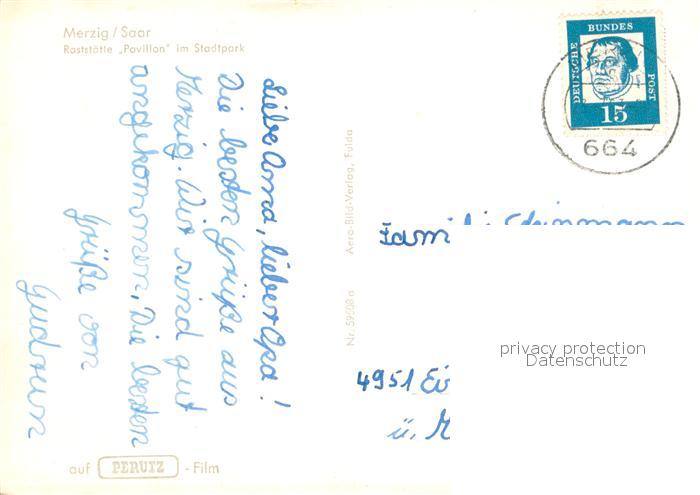 Merzig / Saar
Raststätte „Pavillon" im Stadtpark
Liebe Oma, lieber Opa!
Die besten Grüße aus
Merzig. Wir sind gut
angekommen. Die besten
Grüße von
Gudrun
auf PERUTZ - Film
Nr. 59508 a Aero-Bild-Verlag, Fulda
DEUTSCHE BUNDES POST
15
664
Steinmann
4951
ü. M
privacy protection
Datenschutz